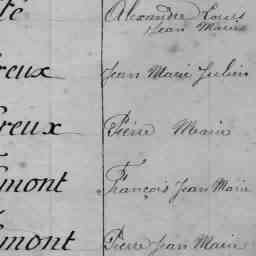 té Alexandre Louis
Jean Marie
reux Jean Marie Julien
reux Pierre Marie
mont François Jean Marie
mont Pierre Jean Marie